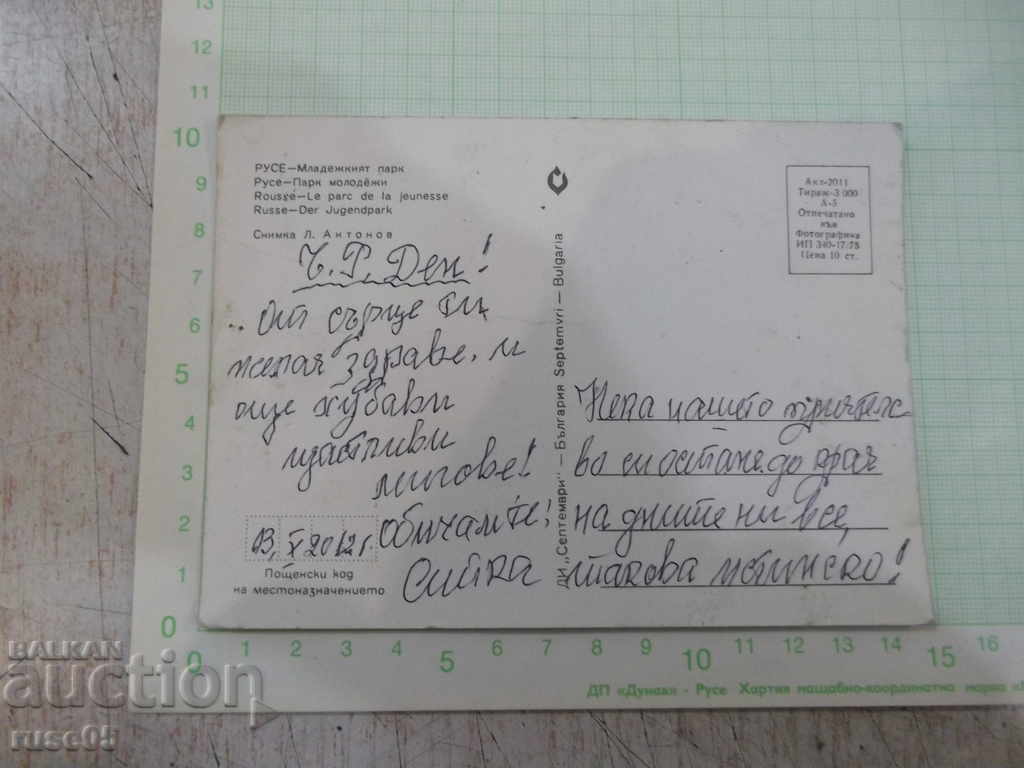 РУСЕ—Младежкият парк
Русе—Парк молодёжи
Rousse—Le parc de la jeunesse
Russe—Der Jugendpark
Снимка Л. Антонов
Ч. Р. Ден!
.. От сърце ти
желая здраве, и
още хубави
щастливи
мигове!
Обичам те!
Сийка
X 2012 г.
Пощенски код
на местоназначението
ДИ „Септември" — България Septemvri — Bulgaria
Акт-2011
Тираж-3 000
А-5
Отпечатано
във
Фотографика
ИП 340-17/78
Цена 10 ст.
Нека нашето приятелс
во си остане до края
на дните ни все
такова истинско!
13
12
11
10
9
8
7
6
5
4
3
2
1
0
0 1 2 3 4 5 6 7 8 9 10 11 12 13 14 15 16
ДП «Дунав» - Русе Хартия мащабно-координатна марка
BALKAN
auction
ruse05